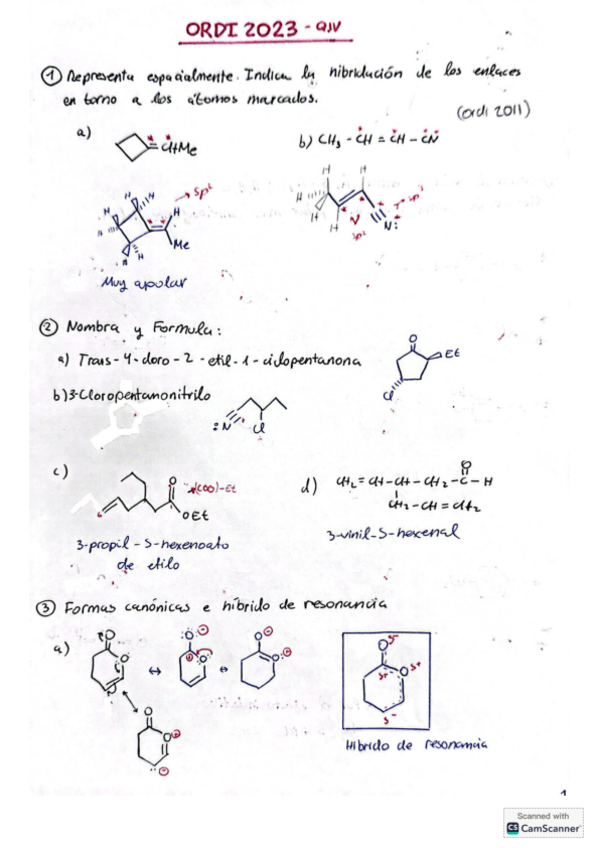 ORDI 2023 - QIV
① Representa espacialmente. Indica la hibridación de los enlaces
en torno a los átomos marcados.
(ordi 2011)
a)
=CHMe
b) CH₃ - CH = CH - CN
H H H H H H H
sp²
Me
Muy apolar
H H H H H H
sp²
N:
② Nombra y Formula:
a) Trans-4-cloro-2-etil-1-ciclopentanona
O
Et
Cl
b) 3-Cloropentanonitrilo
:N
Cl
c)
O
OEt
3-propil-5-hexenoato
de etilo
d) CH₂ = CH - CH - CH₂ - C - H
O
CH₂ - CH = CH₂
3-vinil-5-hexenal
③ Formas canónicas e híbrido de resonancia
a)
Híbrido de resonancia
1
Scanned with
CS CamScanner